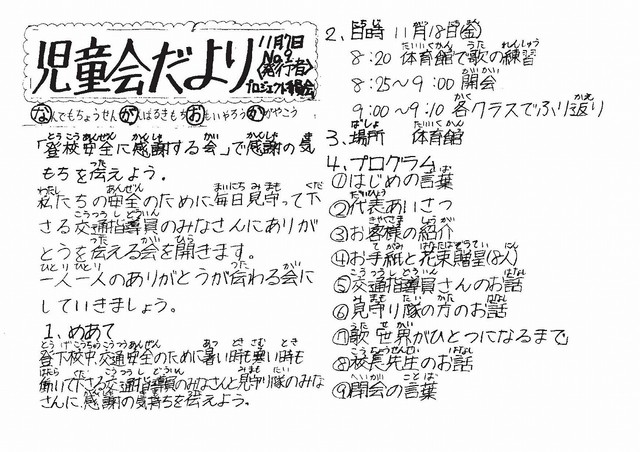 児童会だより
11月7日
No.9
〈発行者〉
プロジェクト委員会
なんでもちょうせん がんばるきもち おもいやろう かがやこう
「登校安全に感謝する会」で感謝の気
もちを伝えよう。
私たちの安全のために毎日見守って下
さる交通指導員のみなさんにありが
とうを伝える会を開きます。
一人一人のありがとうが伝わる会に
していきましょう。
1、めあて
登下校中、交通安全のために暑い時も寒い時も
働いて下さる交通指導員のみなさんと見守り隊のみな
さんに、感謝の気持ちを伝えよう。
2、日時 11月18日(金)
8:20 体育館で歌の練習
8:25〜9:00 開会
9:00〜9:10 各クラスでふり返り
3、場所 体育館
4、プログラム
①はじめの言葉
②代表あいさつ
③お客様の紹介
④お手紙と花束贈呈(8人)
⑤交通指導員さんのお話
⑥見守り隊の方のお話
⑦歌 世界がひとつになるまで
⑧校長先生のお話
⑨閉会の言葉